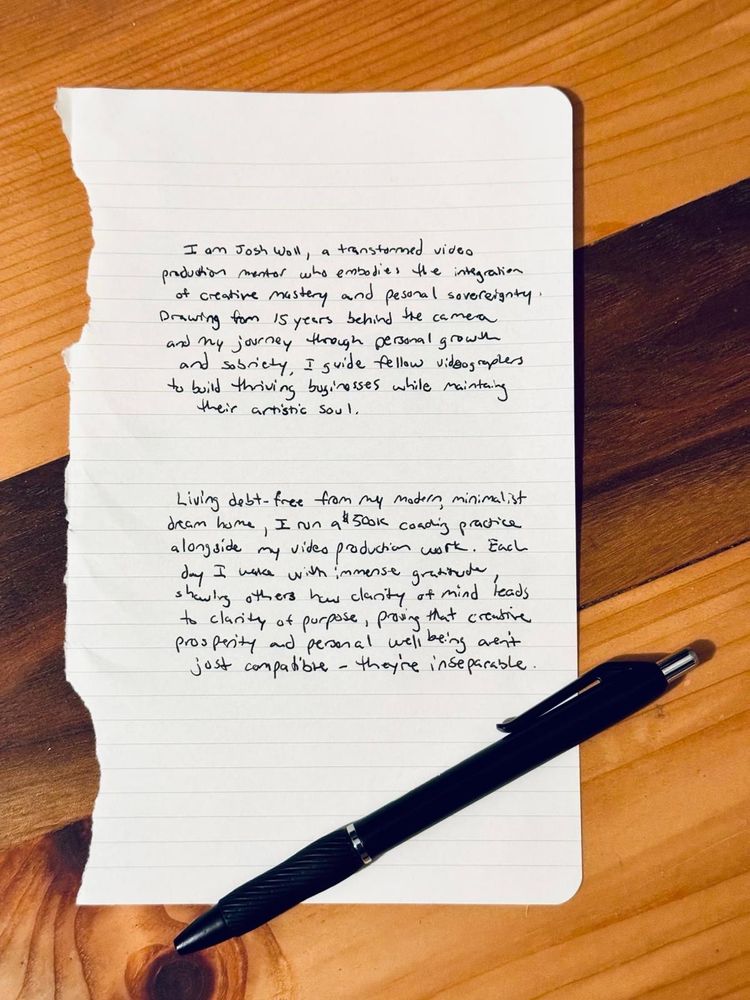 I am Josh Woll, a transformed video
production mentor who embodies the integration
of creative mastery and pesonal sovereignty.
Drawing from 15 years behind the camera
and my journey through personal growth
and sobriety, I guide fellow videographers
to build thriving businesses while maintaing
their artistic soul.
Living debt-free from my modern, minimalist
dream home, I run a $500K coaching practice
alongside my video production work. Each
day I wake with immense gratitude,
showing others how clarity of mind leads
to clarity of purpose, proving that creative
prosperity and personal wellbeing aren't
just compatible – they're inseparable.